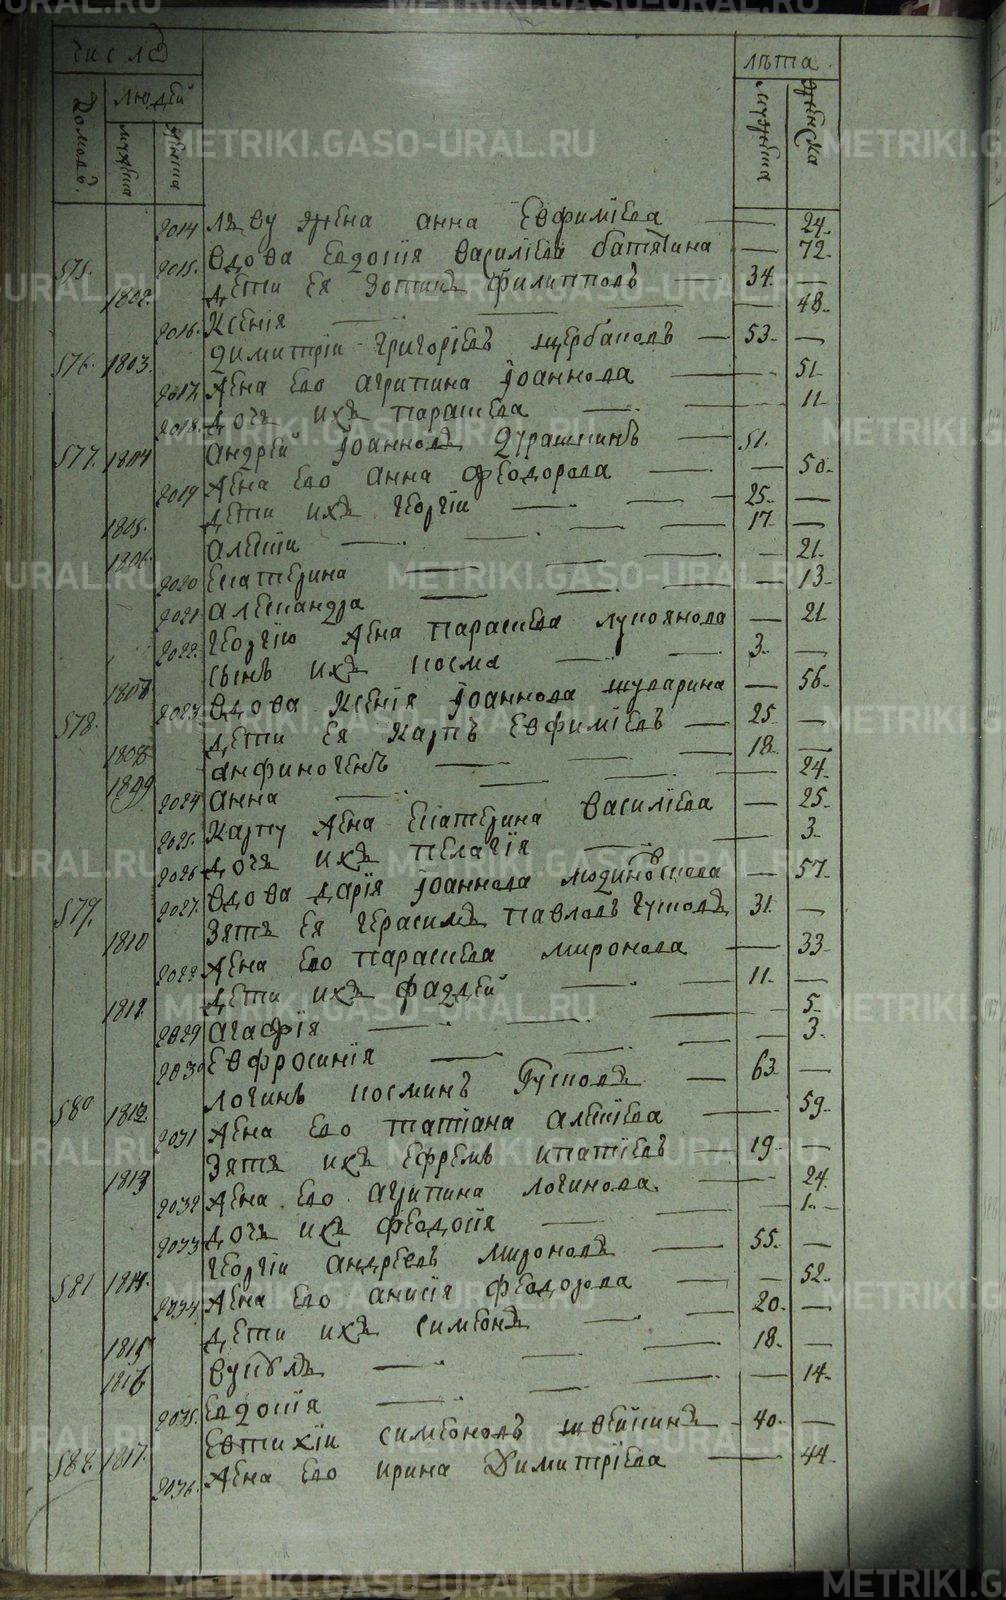 METRIKI.GASO-URAL.RU
числѡ
лѣта
людей
домовъ.
мужеска
женска
мужеска
женска
2014 Льву жена анна Евфимїева — 24.
575. 2015. вдова Евдокїя василїева батятина — 72.
1802. дети Ея Фотий филипповъ — 34. —
2016. Ксенїя — 48.
576. 1803. димитрїи григорїевъ щербаковъ — 53. —
2017. жена Его агрипина Іоаннова — 51.
2018. дочь ихъ параскева — 11.
577. 1804 андрей Іоанновъ дурашкинъ — 51.
2019 жена Его анна феодорова — 50.
1805. дети ихъ георгїи — 25. —
1806. алексїи — 17 —
2020 Екатерина — 21.
2021 александра — 13.
2022. георгїю жена параскева лукоянова — 21
1807 сынъ ихъ косма — 3. —
578. 2023 вдова Ксенїя Іоаннова — 56.
1808 дети Ея Карпъ Евфимїевъ — 25 —
1809 анфиногенъ — 18. —
2024 анна — 24.
2025. Карпу жена Екатерина василїева — 25.
2026 дочь ихъ пелагїя — 3.
579. 2027. вдова дарїя Іоаннова — 57.
1810 зять Ея герасимъ павловъ гусковъ 31. —
2028 жена Его параскева миронова — 33.
1811. дети ихъ фаддей — 11. —
2029 агафїя — 5.
2030 Евфросинїя — 3.
580 1812. логинъ косминъ Гусковъ — 63. —
2031 жена Его татїана алексїева — 59.
1813 зять ихъ Ефремъ ипатїевъ — 19. —
2032 жена Его агрипина логинова — 24.
2033 дочь ихъ феодосїя — 1.
581 1814. георгїи андреевъ мироновъ — 55. —
2034 жена Его анисїя феодорова — 52.
1815 дети ихъ симеонъ — 20. —
1816 вуколъ — 18. —
2035. Евдокїя — 14.
582. 1817. Евтихїи симеоновъ швейкинъ — 40. —
2036. жена Его ирина Димитрїева — 44.